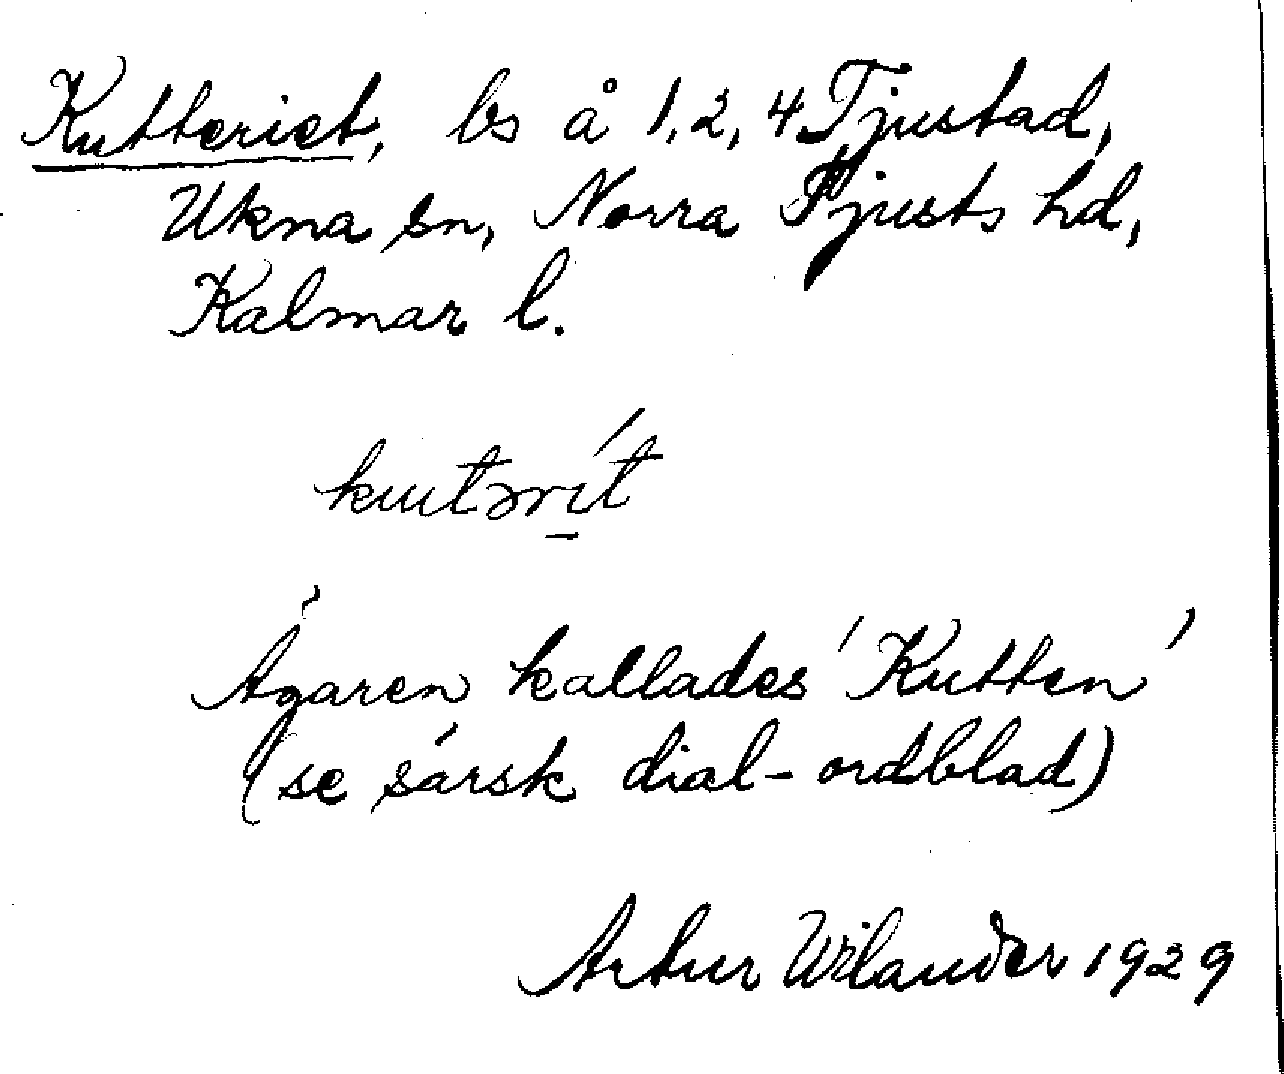 Kutteriet, ls å 1, 2, 4 Tjustad,
Ukna sn, Norra Tjusts hd,
Kalmar l.
kutərí̱t
Ägaren kallades 'Kutten'
(se särsk dial-ordblad)
Artur Wilander 1929